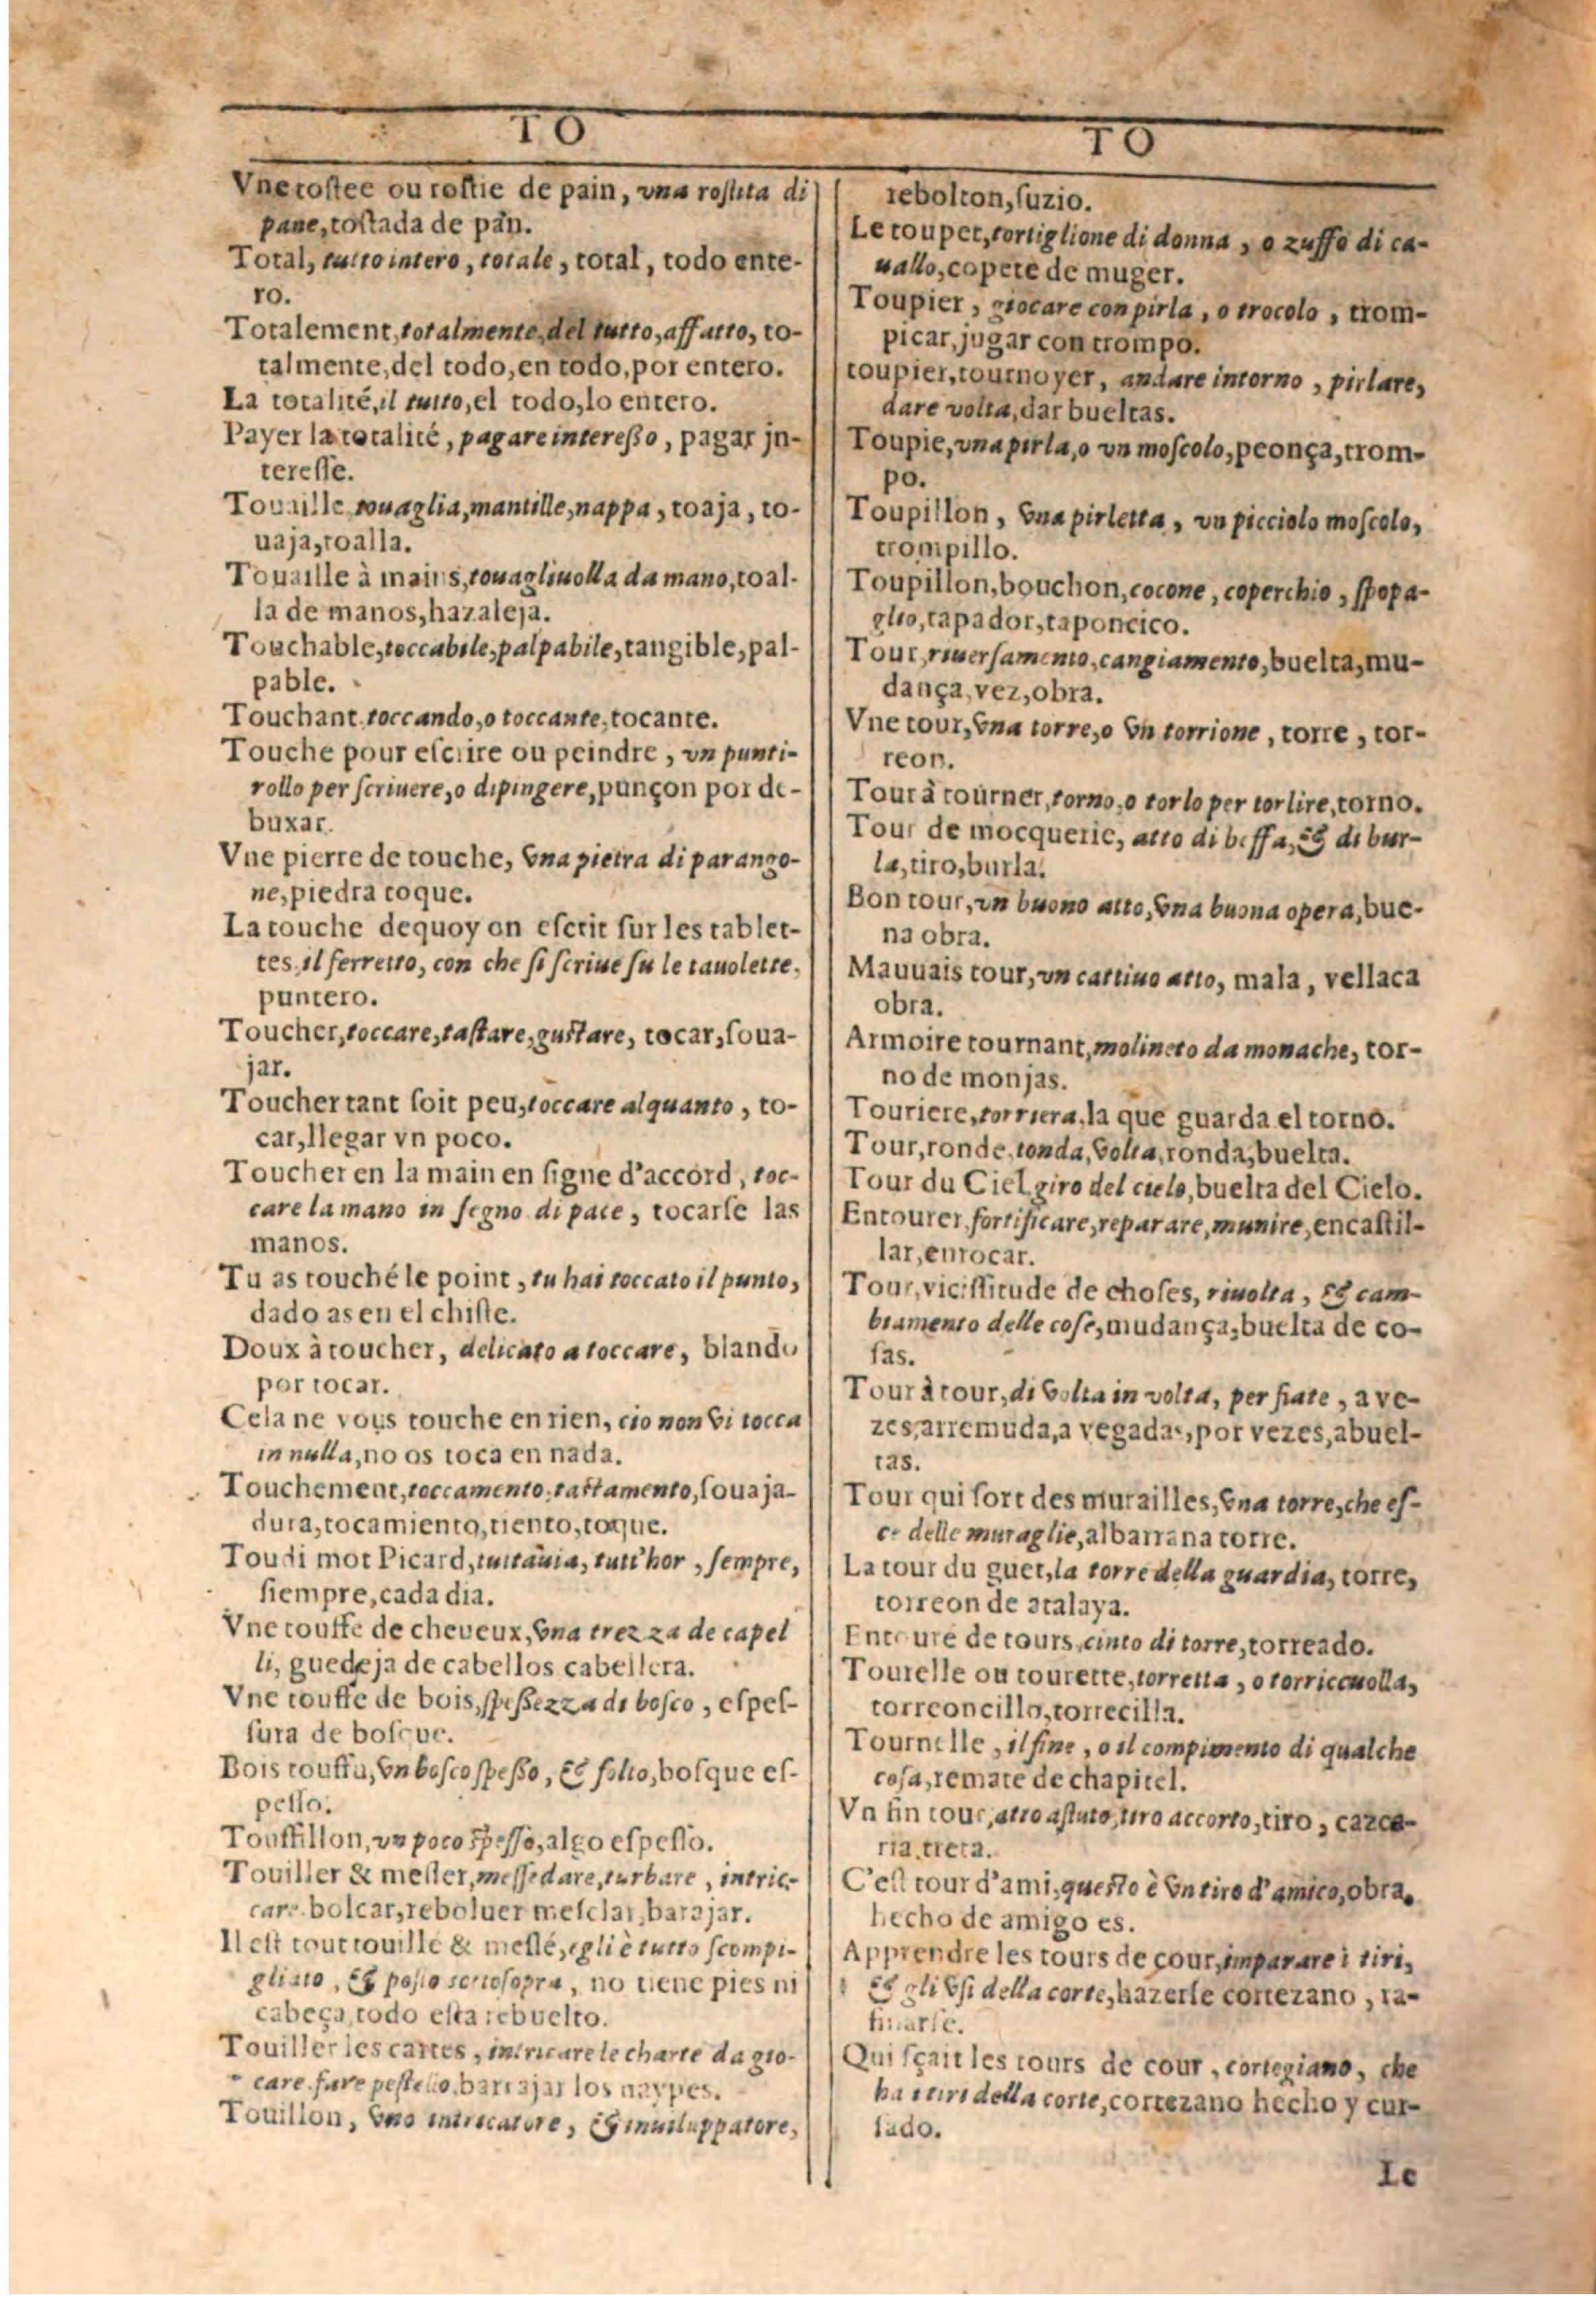 TO
Vne tostee ou rostie de pain, vna rostita di
pane, tostada de pan.
Total, tutto intero, totale, total, todo ente-
ro.
Totalement, totalmente, del tutto, affatto, to-
talmente, del todo, en todo, por entero.
La totalité, il tutto, el todo, lo entero.
Payer la totalité, pagare interesso, pagar jn-
teresse.
Touaille touaglia, mantille, nappa, toaja, to-
uaja, toalla.
Touaille à mains, touagliuolla da mano, toal-
la de manos, hazaleja.
Touchable, toccabile, palpabile, tangible, pal-
pable.
Touchant, toccando, o toccante, tocante.
Touche pour escrire ou peindre, vn punti-
rollo per scriuere, o dipingere, punçon por de-
buxar.
Vne pierre de touche, vna pietra di parango-
ne, piedra toque.
La touche dequoy on escrit sur les tablet-
tes, il ferretto, con che si scriue su le tauolette,
puntero.
Toucher, toccare, tastare, gustare, tocar, soua-
jar.
Toucher tant soit peu, toccare alquanto, to-
car, llegar vn poco.
Toucher en la main en signe d'accord, toc-
care la mano in segno di pace, tocarse las
manos.
Tu as touché le point, tu hai toccato il punto,
dado as en el chiste.
Doux à toucher, delicato a toccare, blando
por tocar.
Cela ne vous touche en rien, cio non vi tocca
in nulla, no os toca en nada.
Touchement, toccamento, tastamento, souaja-
dura, tocamiento, tiento, toque.
Toudi mot Picard, tuttauia, tutt'hor, sempre,
siempre, cada dia.
Vne touffe de cheueux, vna trezza de capel
li, guedeja de cabellos cabellera.
Vne touffe de bois, spessezza di bosco, espes-
sura de bosque.
Bois touffu, vn bosco spesso, & folto, bosque es-
pesso.
Touffillon, vn poco spesso, algo espesso.
Touiller & mesler, messedare, turbare, intric-
care bolcar, reboluer mesclar, barajar.
Il est tout touillé & meslé, egli è tutto scompi-
gliato, & posto sottosopra, no tiene pies ni
cabeça, todo esta rebuelto.
Touiller les cartes, intricare le charte da gio-
care, fare pastello, barrajar los naypes.
Touillon, vno intricatore, & inuiluppatore,
TO
rebolton, suzio.
Le toupet, tortiglione di donna, o zuffo di ca-
uallo, copete de muger.
Toupier, giocare con pirla, o trocolo, trom-
picar, jugar con trompo.
toupier, tournoyer, andare intorno, pirlare,
dare volta, dar bueltas.
Toupie, vna pirla, o vn moscolo, peonça, trom-
po.
Toupillon, vna pirletta, vn picciolo moscolo,
trompillo.
Toupillon, bouchon, cocone, coperchio, spopa-
glio, tapador, taponcico.
Tour, riuersamento, cangiamento, buelta, mu-
dança, vez, obra.
Vne tour, vna torre, o vn torrione, torre, tor-
reon.
Tour à tourner, torno, o torlo per torlire, torno.
Tour de mocquerie, atto di beffa, & di bur-
la, tiro, burla.
Bon tour, vn buono atto, vna buona opera, bue-
na obra.
Mauuais tour, vn cattiuo atto, mala, vellaca
obra.
Armoire tournant, molineto da monache, tor-
no de monjas.
Touriere, torriera, la que guarda el torno.
Tour, ronde, tonda, volta, ronda, buelta.
Tour du Ciel, giro del cielo, buelta del Cielo.
Entourer, fortificare, reparare, munire, encastil-
lar, enrocar.
Tour, vicissitude de choses, riuolta, & cam-
biamento delle cose, mudança, buelta de co-
sas.
Tour à tour, di volta in volta, per fiate, a ve-
zes, arremuda, a vegadas, por vezes, abuel-
tas.
Tour qui sort des murailles, vna torre, che es-
ce delle muraglie, albarrana torre.
La tour du guet, la torre della guardia, torre,
torreon de atalaya.
Entouré de tours, cinto di torre, torreado.
Tourelle ou tourette, torretta, o torriccuolla,
torreoncillo, torrecilla.
Tournelle, il fine, o il compimento di qualche
cosa, remate de chapitel.
Vn fin tour, atto astuto, tiro accorto, tiro, cazca-
ria, treta.
C'est tour d'ami, questo è vn tiro d'amico, obra,
hecho de amigo es.
Apprendre les tours de cour, imparare i tiri,
& gli vsi della corte, hazerse cortezano, ra-
finarse.
Qui sçait les tours de cour, cortegiano, che
ha i tiri della corte, cortezano hecho y cur-
sado.
Le